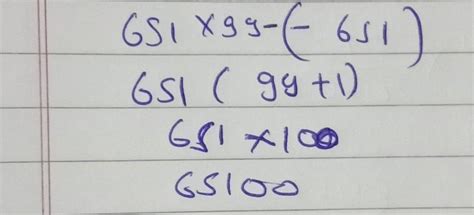 651 × 99 - (- 651)
651 ( 99 + 1)
651 × 100
65100